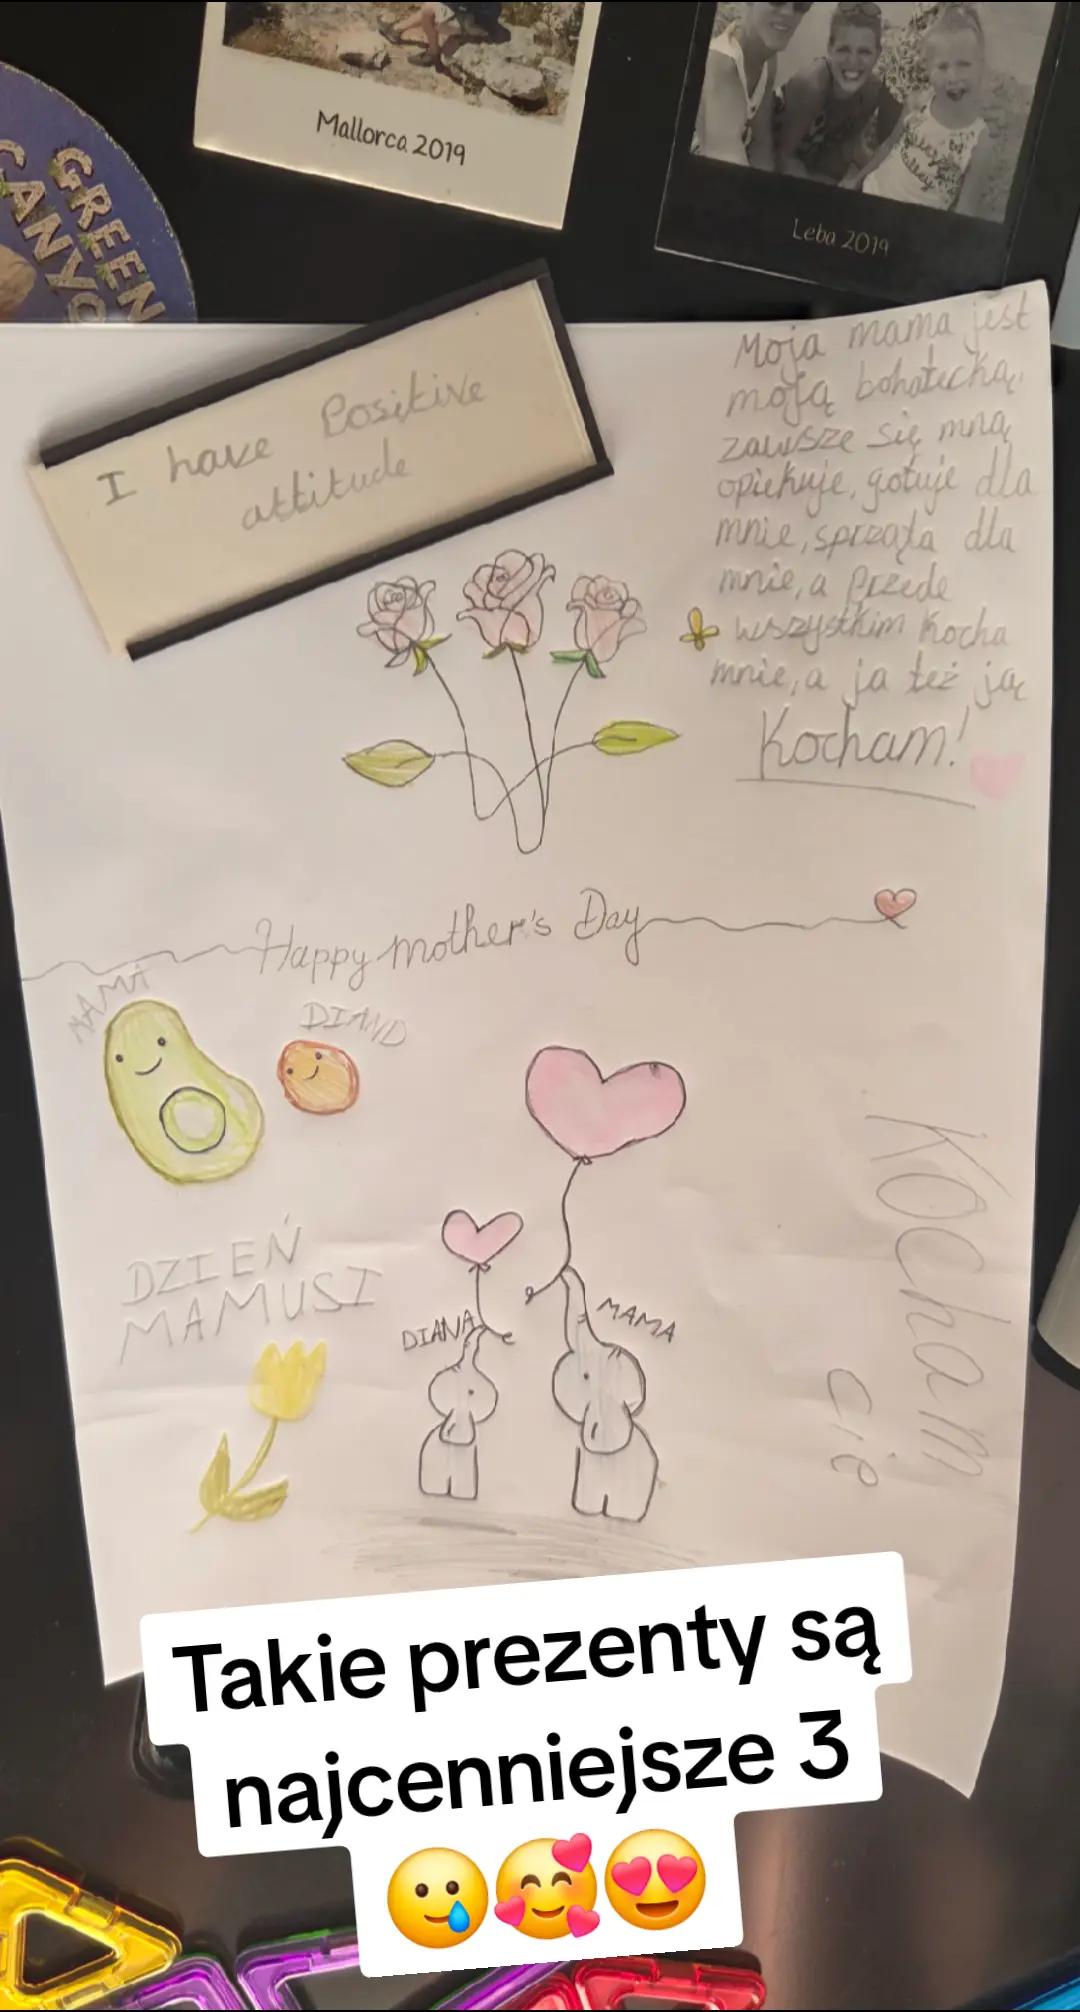 Mallorca 2019
Leba 2019
GREEN
I have Positive
attitude
Moja mama jest
moją bohaterką,
zawsze się mną
opiekuje, gotuje dla
mnie, sprząta dla
mnie, a Przede
wszystkim Kocha
mnie, a ja też ją
Kocham!
Happy mother's Day
MAMA
DIANA
DZIEŃ
MAMUSI
DIANA
MAMA
Kocham
cię
Takie prezenty są
najcenniejsze 3
🥲🥰😍